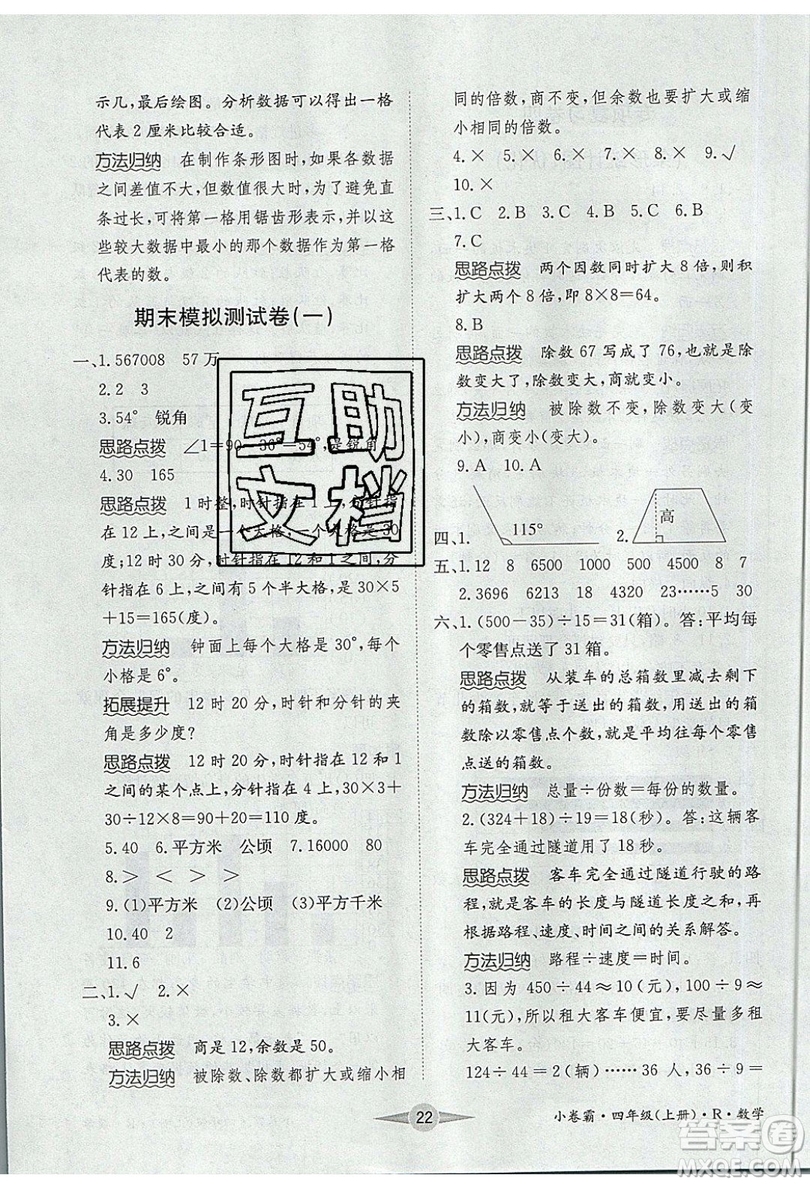 示几,最后绘图。分析数据可以得出一格
代表2厘米比较合适。
方法归纳 在制作条形图时,如果各数据
之间差值不大,但数值很大时,为了避免直
条过长,可将第一格用锯齿形表示,并以这
些较大数据中最小的那个数据作为第一格
代表的数。
期末模拟测试卷(一)
一、1.567008 57万
2.2 3
3.54° 锐角
思路点拨 ∠1=90°-36°=54°,是锐角
4.30 165
思路点拨 1时整,时针指在1上,分针指
在12上,之间是一个大格,一个大格是30
度;12时30分,时针指在12和1之间,分
针指在6上,之间有5个半大格,是30×5
+15=165(度)。
方法归纳 钟面上每个大格是30°,每个
小格是6°。
拓展提升 12时20分,时针和分针的夹
角是多少度?
思路点拨 12时20分,时针指在12和1
之间的某个点上,分针指在4上,是30×3+
30÷12×8=110度。
5.40 6.平方米 公顷 7.16000 80
8.> < > >
9.(1)平方米 (2)公顷 (3)平方千米
10.40 2
11.6
二、1.√ 2.×
3.×
思路点拨 商是12,余数是50。
方法归纳 被除数、除数都扩大或缩小相
同的倍数,商不变,但余数也要扩大或缩
小相同的倍数。
4.× 5.× 6.× 7.× 8.× 9.√
10.×
三、1.C 2.B 3.C 4.B 5.C 6.B
7.C
思路点拨 两个因数同时扩大8倍,则积
扩大两个8倍,即8×8=64。
8.B
思路点拨 除数67写成了76,也就是除
数变大了,除数变大,商变小。
方法归纳 被除数不变,除数变大(变
小),商变小(变大)。
9.A 10.A
四、1. 115° 2. 高
五、1.12 8 6000 1000 500 4500 8 7
2.3696 6213 18 4320 23……5 30
六、1.(500-35)÷15=31(箱)。答:平均每
个零售点送了31箱。
思路点拨 从装车的总箱数里减去剩下
的箱数,就等于送出的箱数,用送出的箱
数除以零售点个数,就是平均往每个零售
点送的箱数。
方法归纳 总量÷份数=每份的数量。
2.(324+18)÷19=18(秒)。答:这辆客
车完全通过隧道用了18秒。
思路点拨 客车完全通过隧道行驶的路
程,是客车的长度与隧道的长度之和,再
根据路程、速度、时间之间的关系解答。
方法归纳 路程÷速度=时间。
3.因为450÷44≈10(元),100÷9≈
11(元),所以租大客车便宜,要尽量多租
大客车。
124÷44=2(辆)……36人,36÷9=
22
小卷霸·四年级(上册)·R·数学
互助
文档
答案圈
MXQE.COM